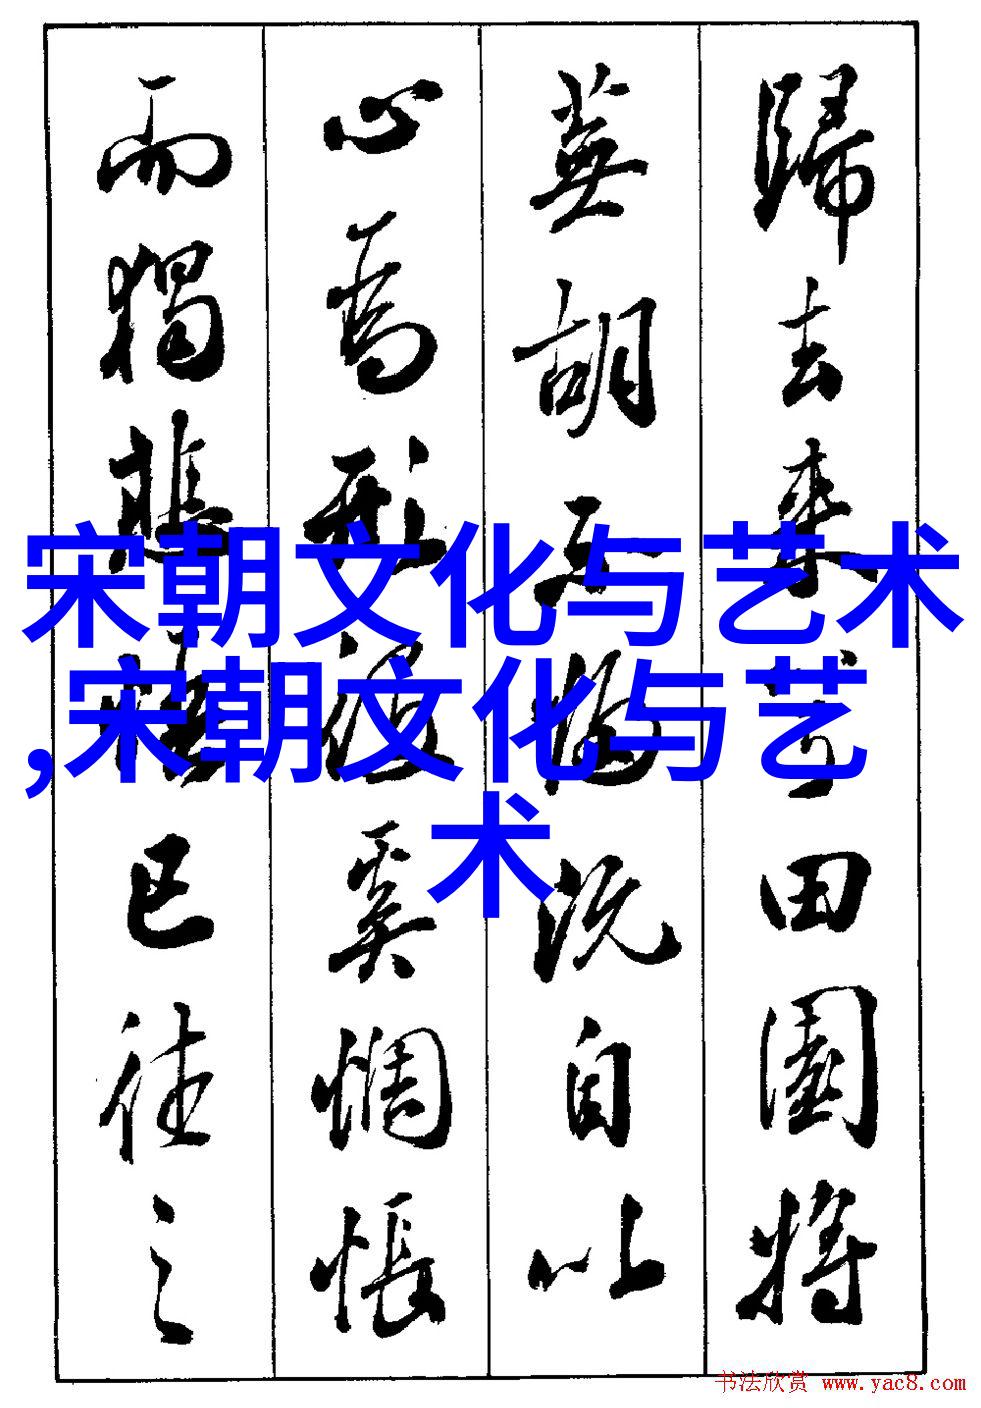 歸去來兮田園將
蕪胡不歸既自以
心為形役奚惆悵
而獨悲悟已往之
宋朝文化与艺术
,宋朝文化与艺
术
书法欣赏 www.yac8.com